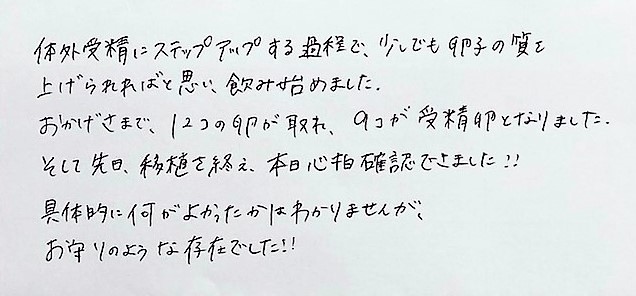 体外受精にステップアップする過程で、少しでも卵子の質を
上げられればと思い、飲み始めました.
おかげさまで、12コの卵が取れ、9コが受精卵となりました.
そして先日、移植を終え、本日心拍確認できました!!
具体的に何がよかったかはわかりませんが、
お守りのような存在でした!!